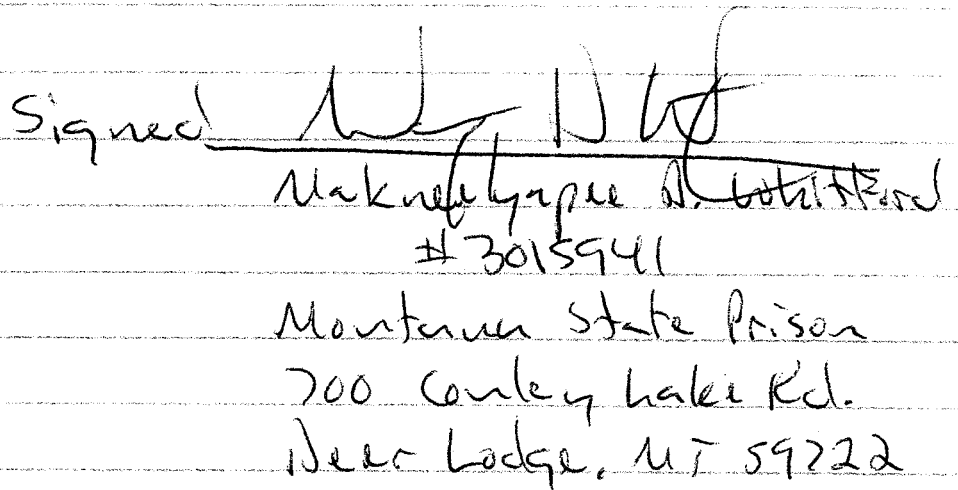 Signed
D. Whitford
#3015941
Montana State Prison
700 Conley Lake Rd.
Deer Lodge, MT 59722